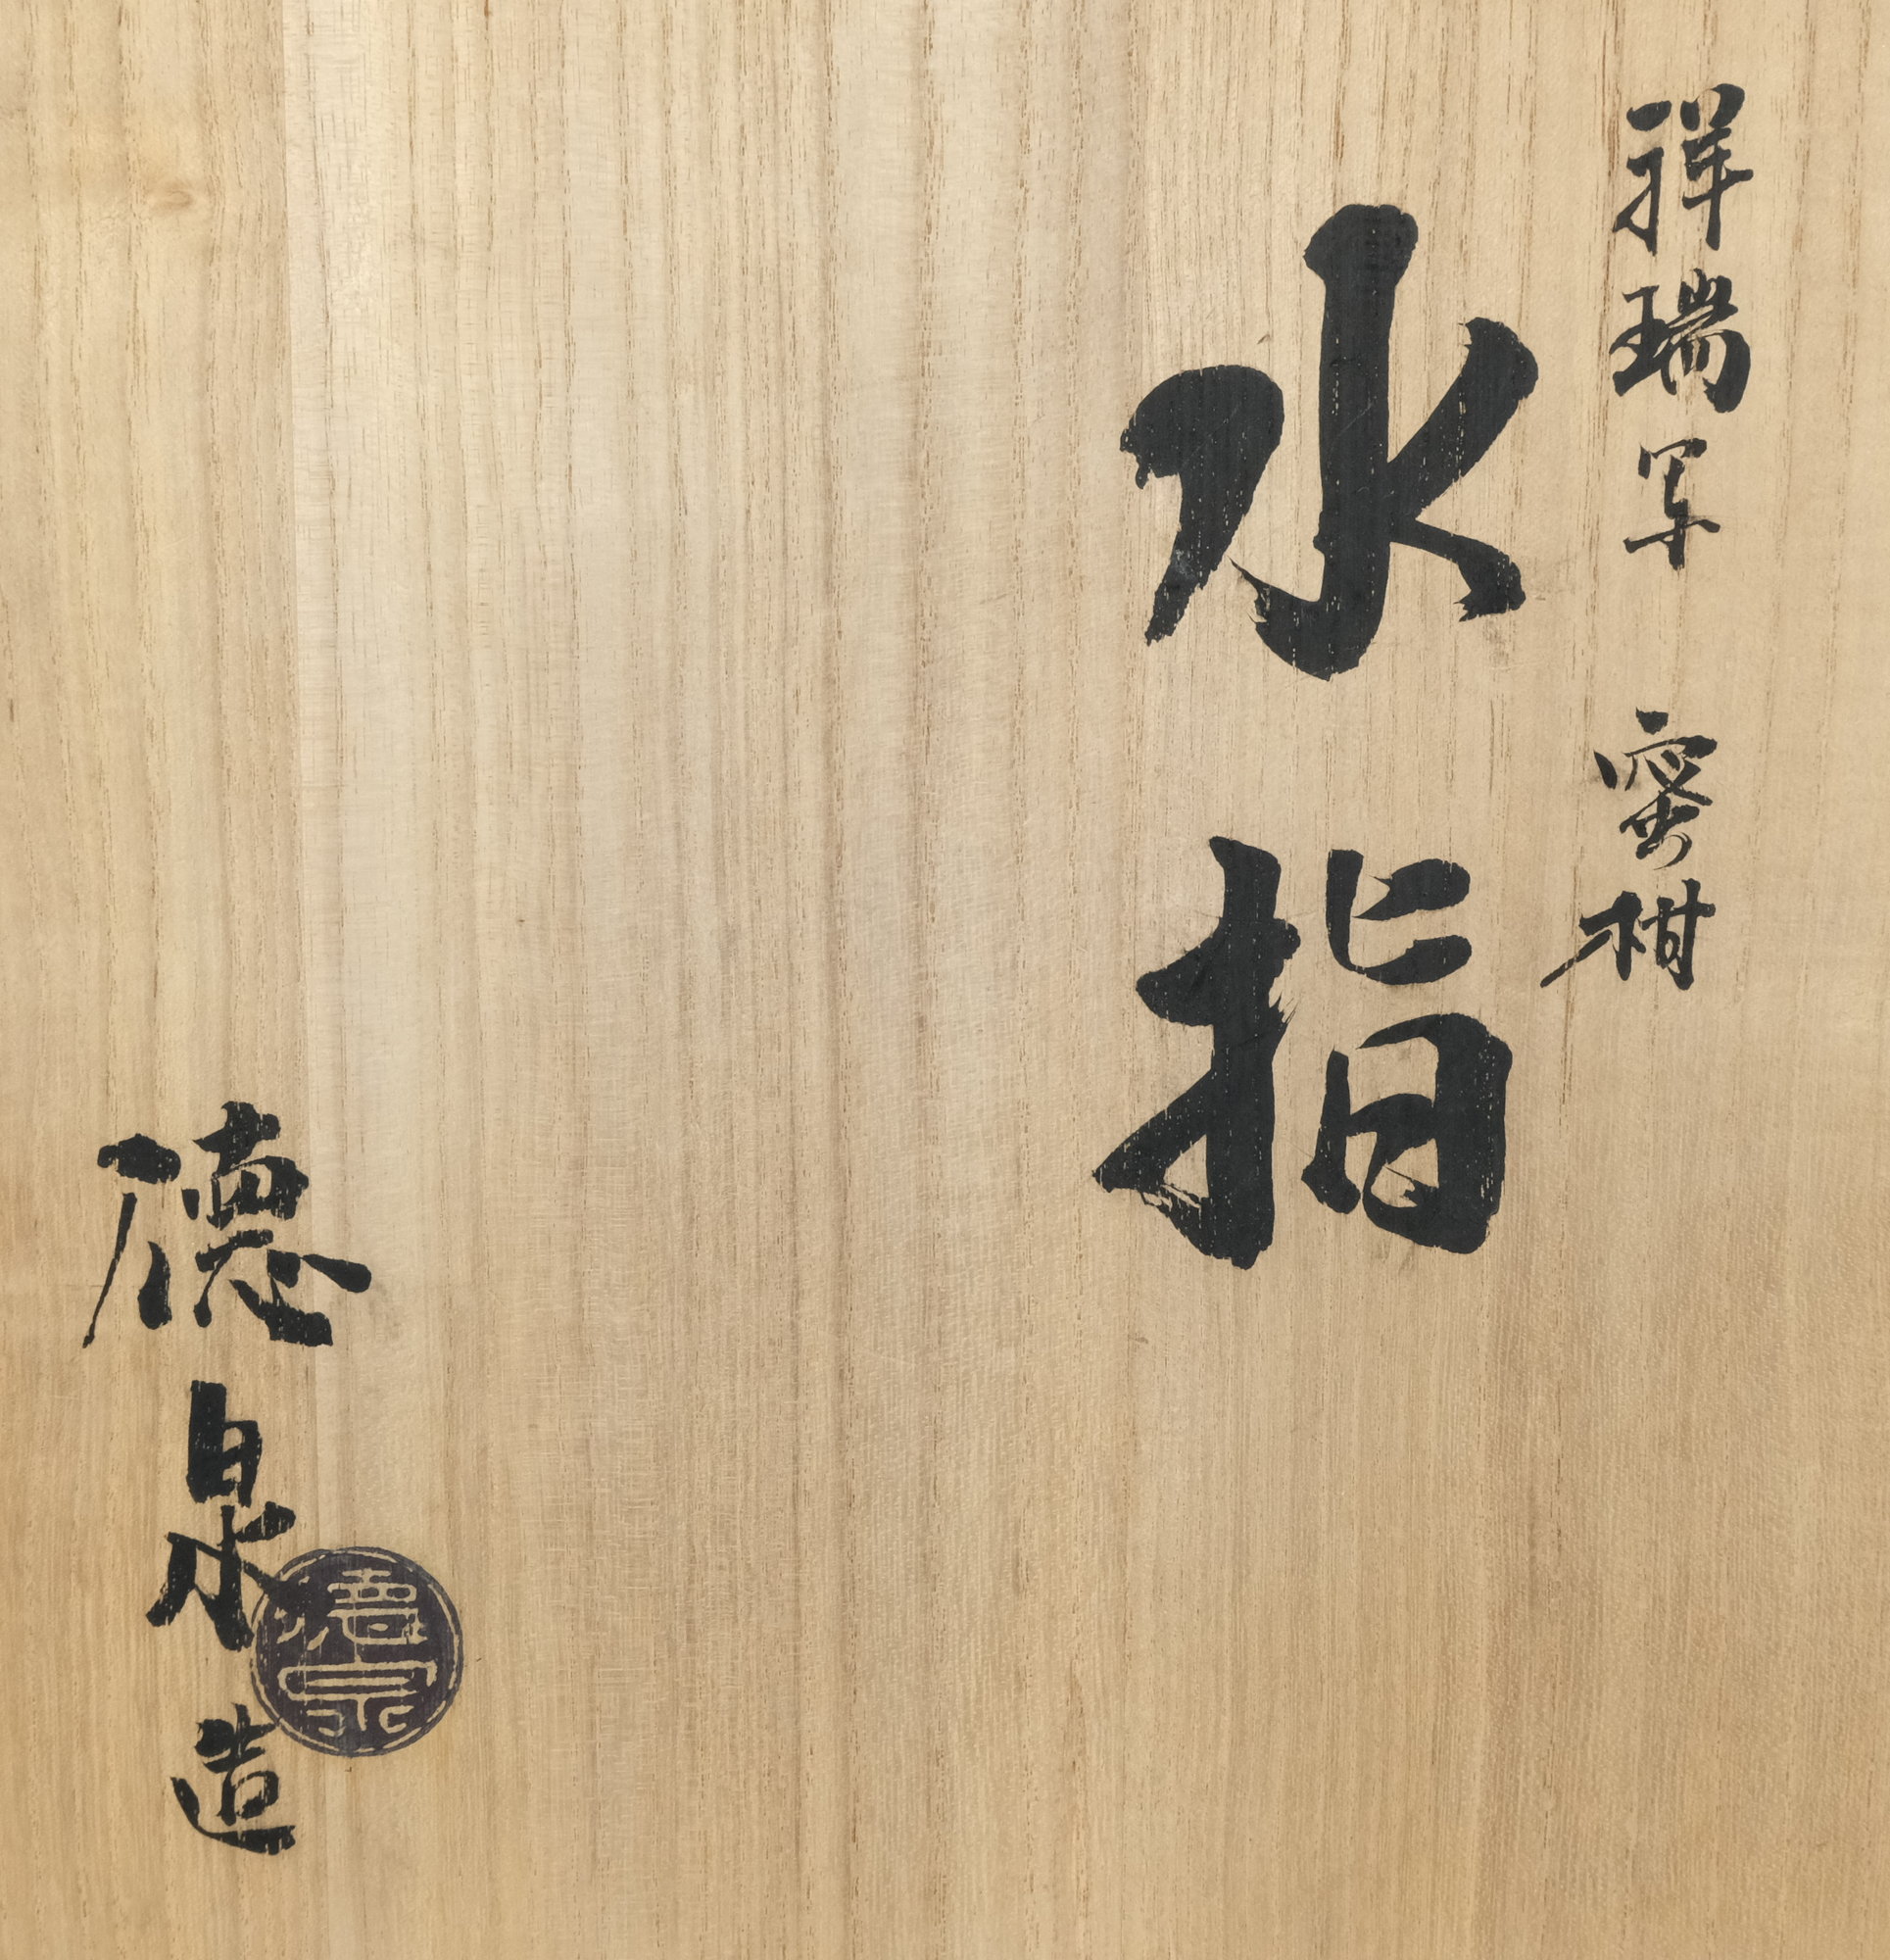 祥瑞写 蜜柑
水指
德泉造
德泉